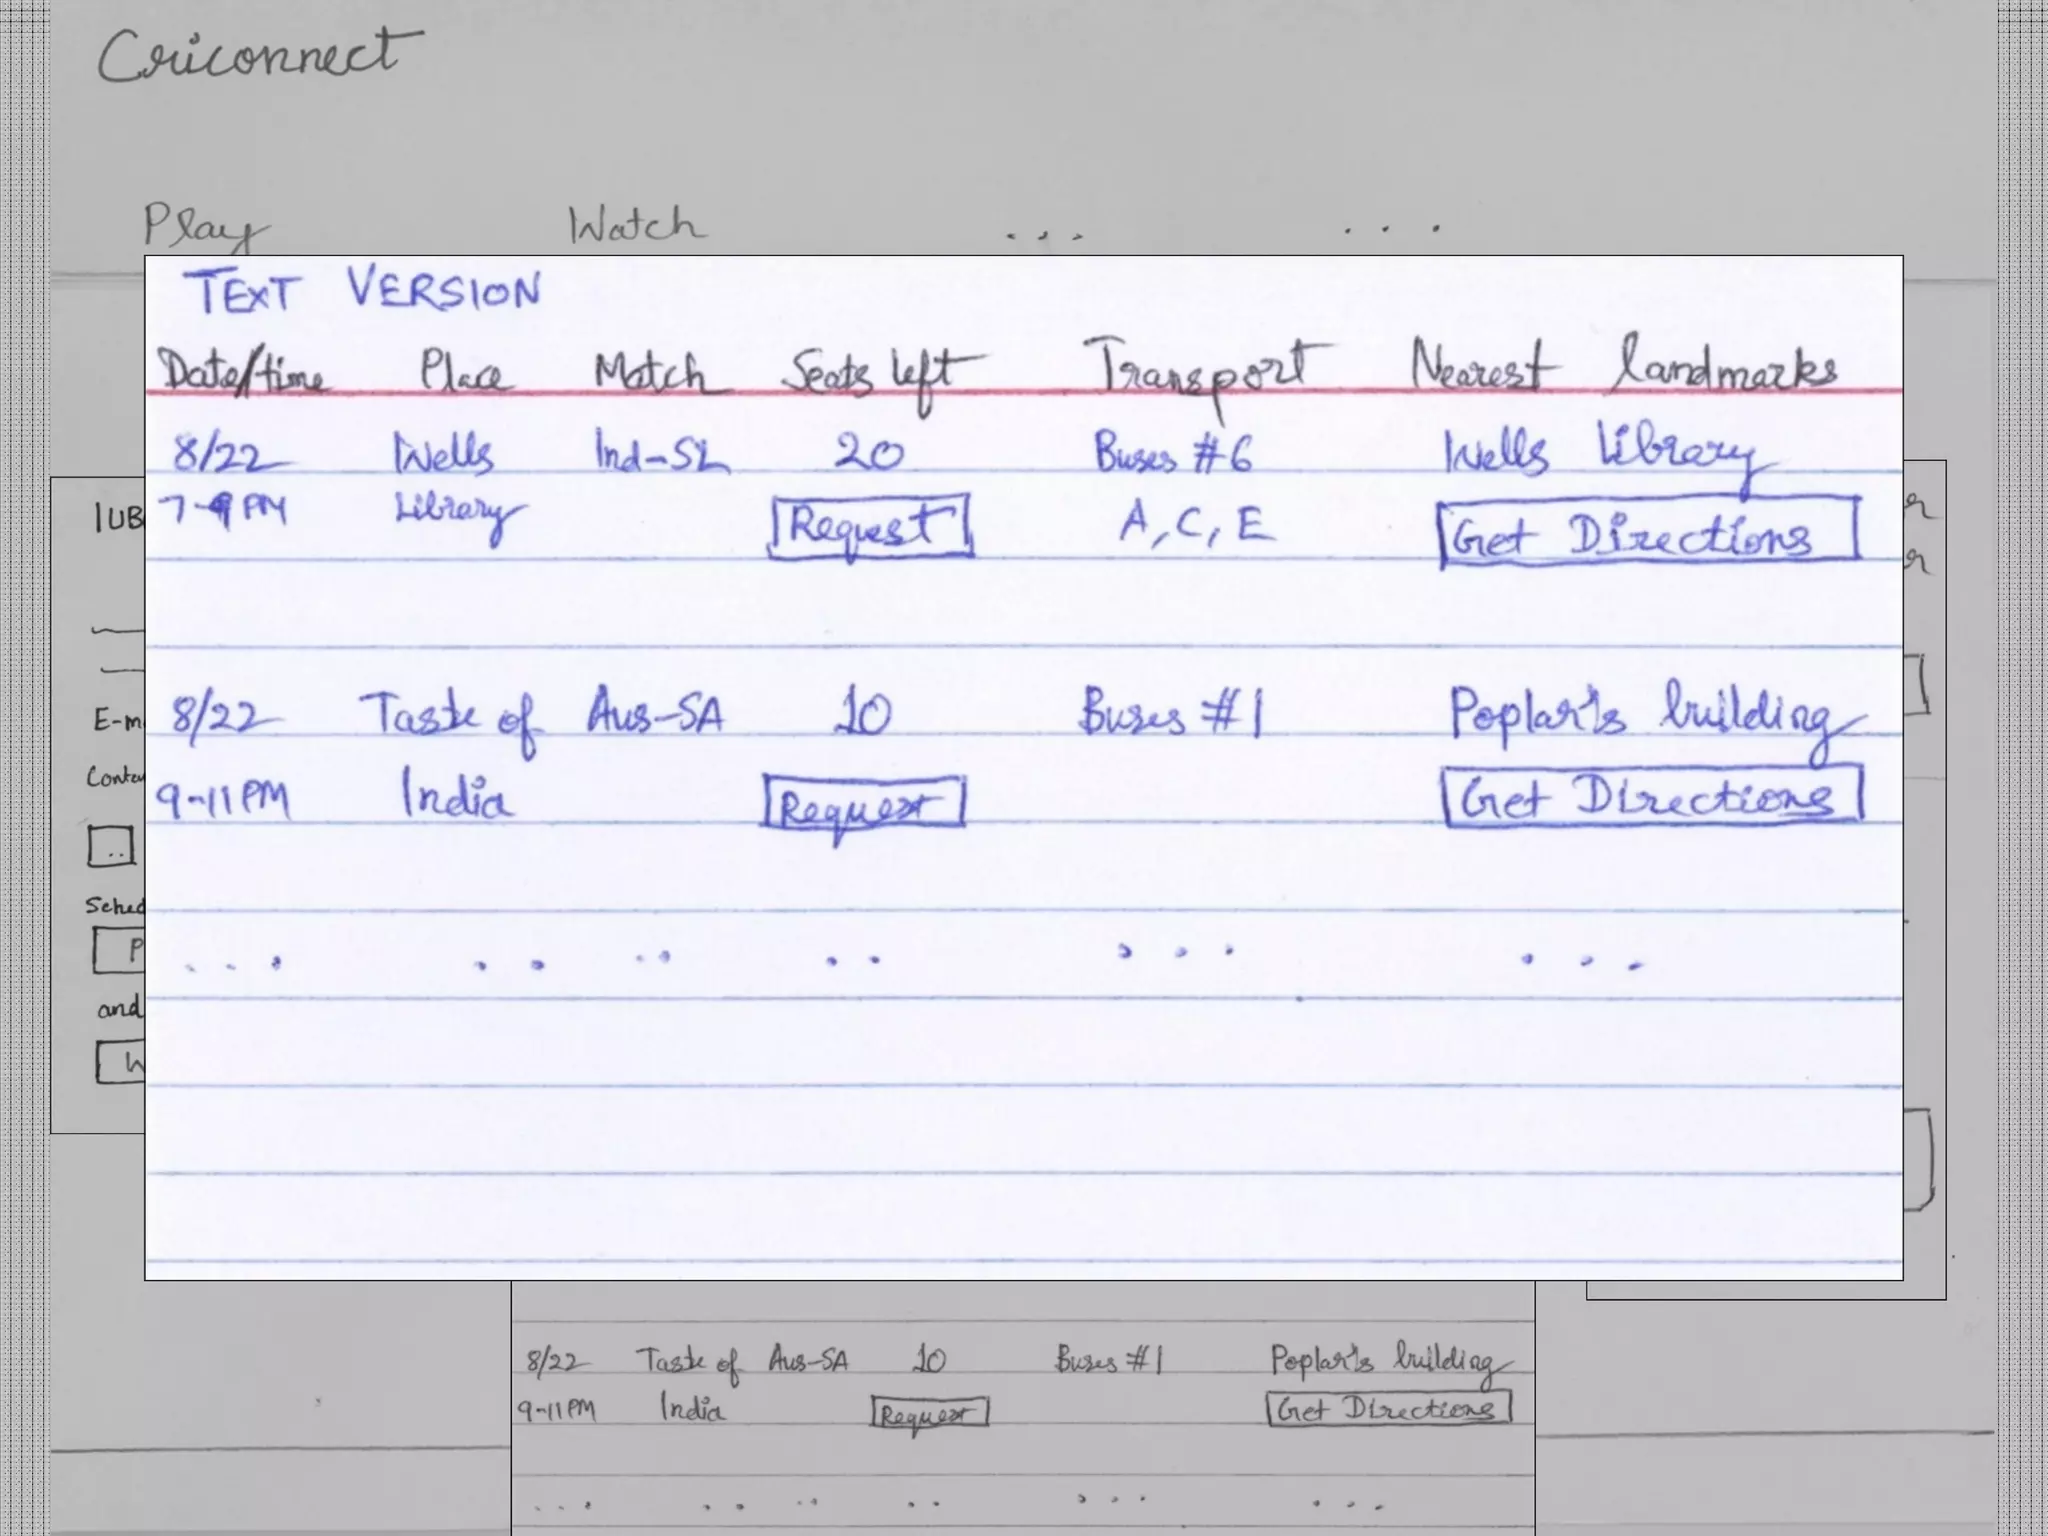 Criconnect
Play Watch ... ...
TEXT VERSION
Date/time Place Match Seats left Transport Nearest landmarks
8/22 Wells Ind-SL 20 Buses #6 Wells Library
7-9 PM Library Request A, C, E Get Directions
8/22 Taste of Aus-SA 10 Buses #1 Poplar's building
9-11 PM India Request Get Directions
... .. .. .. ... ...
IUB
E-m
Conta
..
Sched
P
and
W
8/22 Taste of Aus-SA 10 Buses #1 Poplar's building
9-11 PM India Request Get Directions
... .. .. .. ... ...